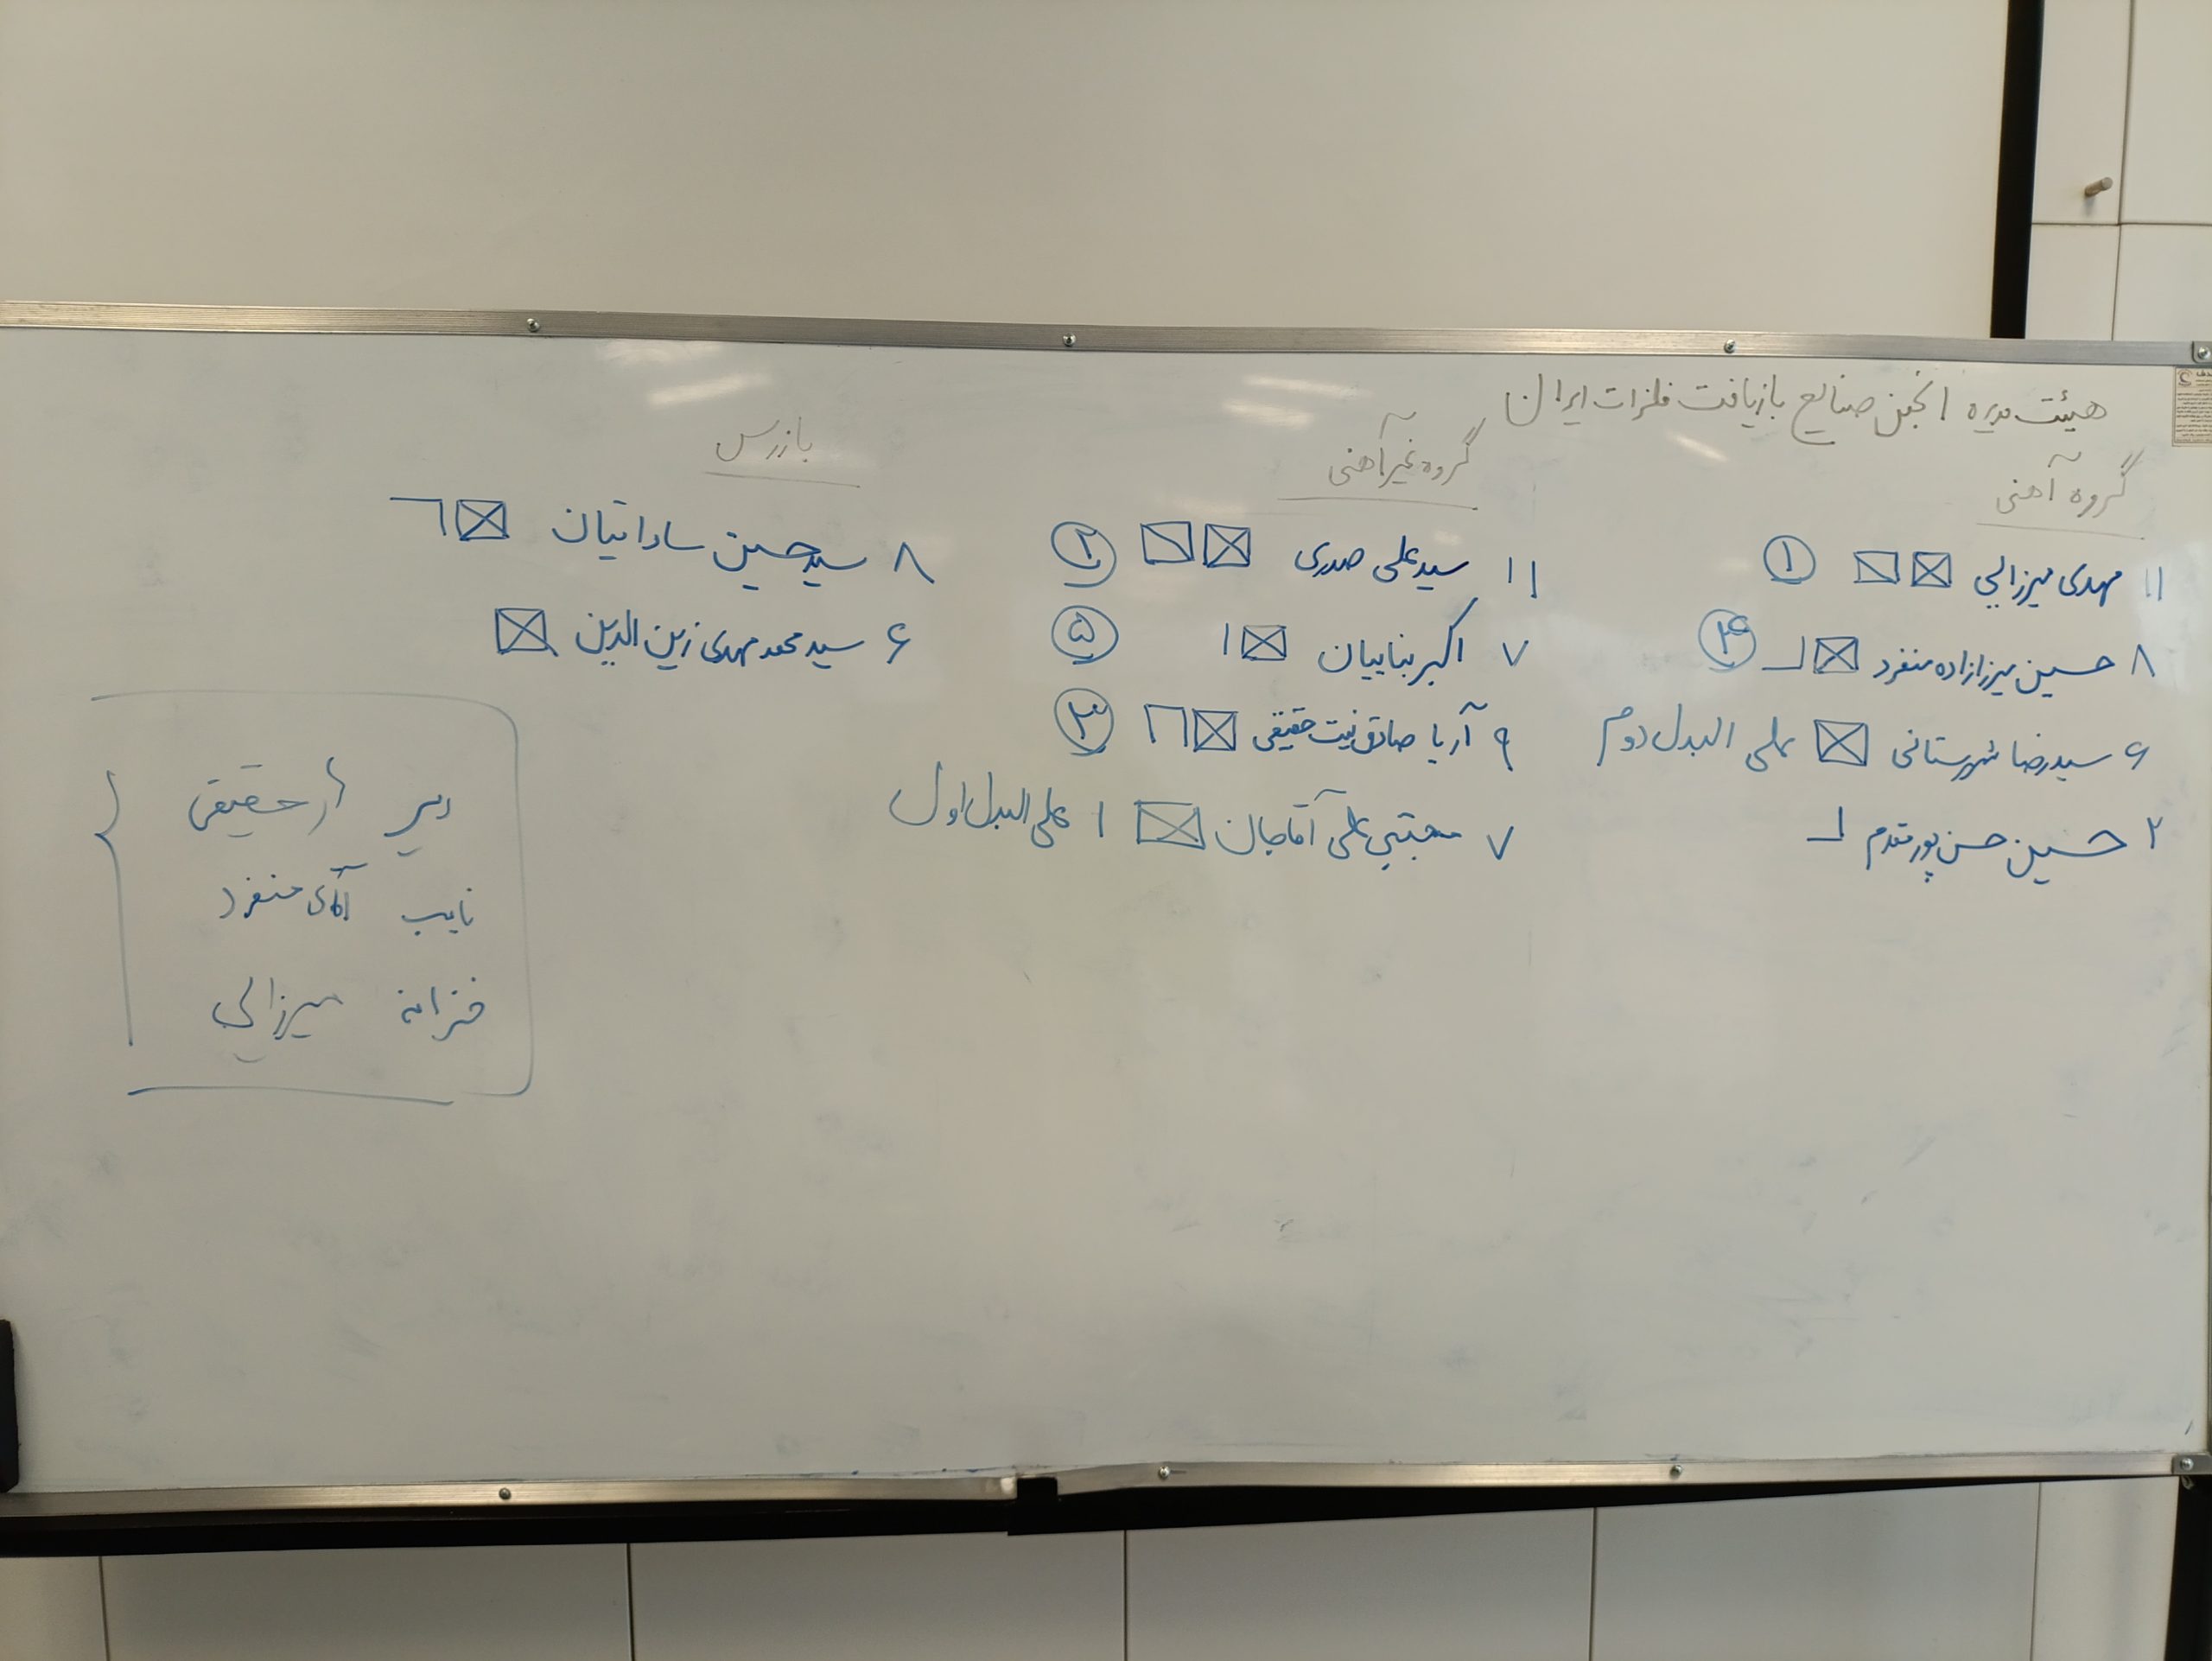 هیئت مدیره انجمن صنایع بازیافت فلزات ایران
گروه آهنی
۱۱ مهدی میرزالی ①
۸ حسین میرزازاده منفرد ④
۶ سیدرضا شهرستانی علی البدل دوم
۲ حسین حسن پور مقدم
گروه غیرآهنی
۱۱ سیدعلی صدری ②
۷ اکبر بنابیان ۱ ⑤
۹ آریا صادق نیت حقیقی ③
۷ مجتبی علی آقاجان ۱ علی البدل اول
بازرس
۸ سیدحسین ساداتیان
۶ سیدمحمدمهدی زین الدین
دبیر حقیقی
نایب آقای منفرد
خزانه میرزالی